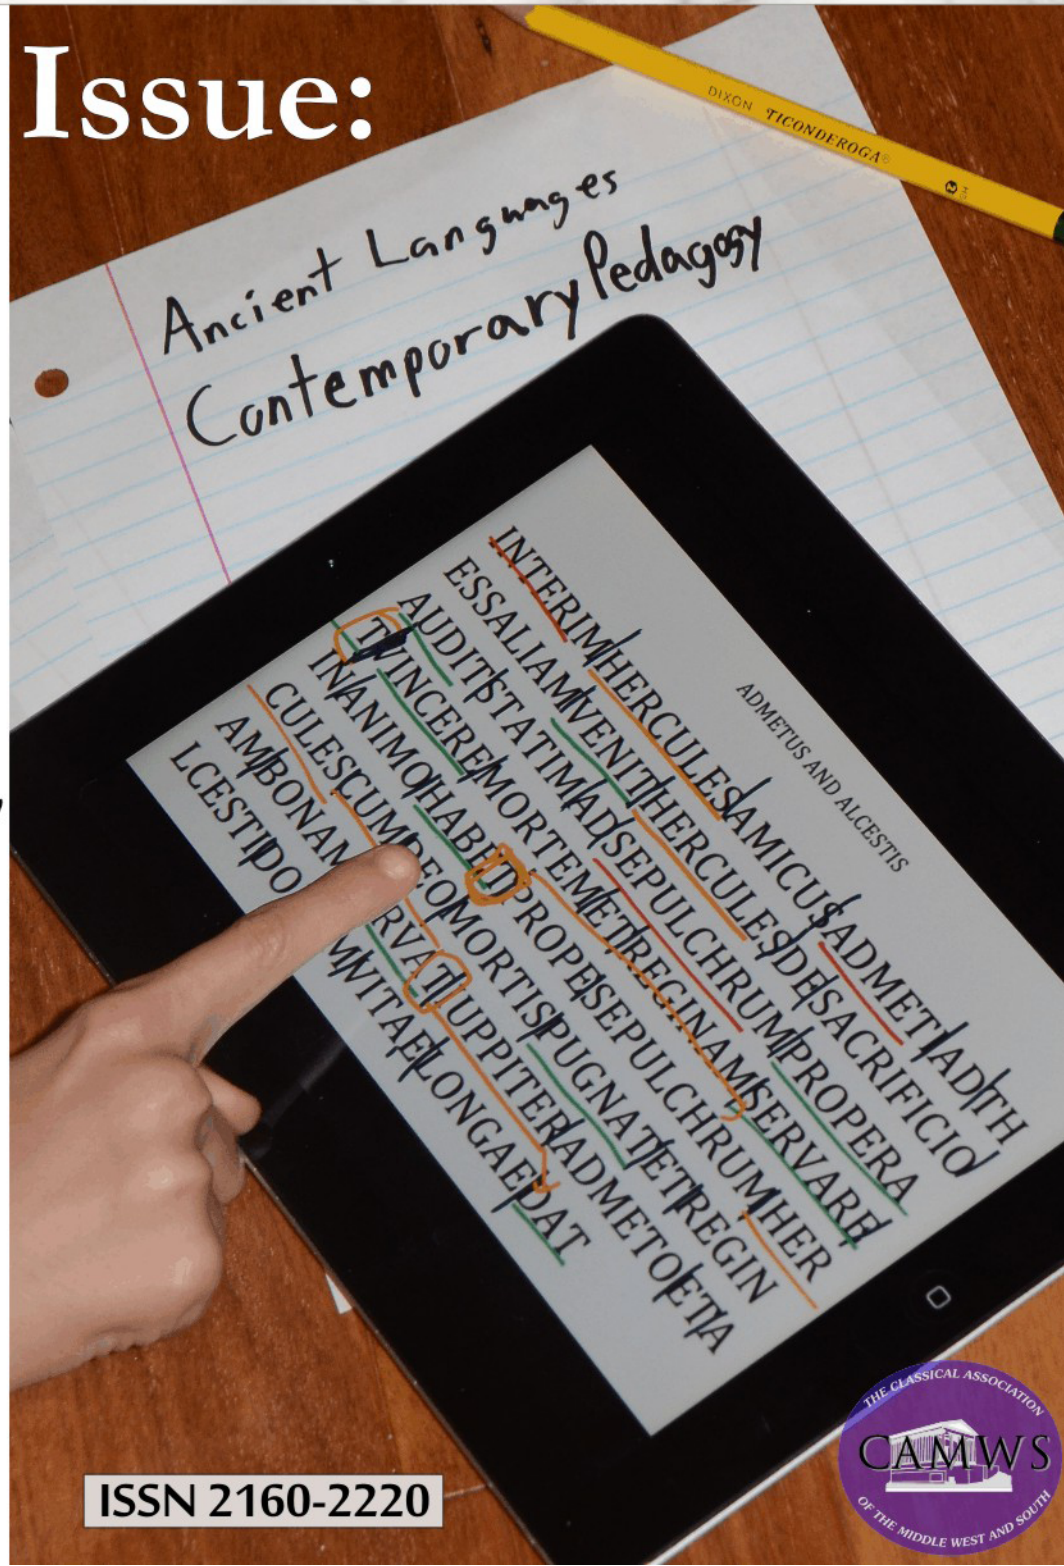 Issue:
DIXON TICONDEROGA®
Ancient Languages
Contemporary Pedagogy
ADMETUS AND ALCESTIS
INTERIMHERCULESAMICUSADMETIADTH
ESSALIAMVENITHERCULESDESACRIFICIO
AUDITSTATIMADSEPULCHRUMPROPERA
TVINCEREMORTEMETREGINAMSERVARE
INANIMOHABETPROPESEPULCHRUMHER
CULESCUMDEOMORTISPUGNATETREGIN
AMBONAM RVATIUPPITERADMETOETA
LCESTIDO MVITAELONGAEDAT
THE CLASSICAL ASSOCIATION
CAMWS
OF THE MIDDLE WEST AND SOUTH
ISSN 2160-2220